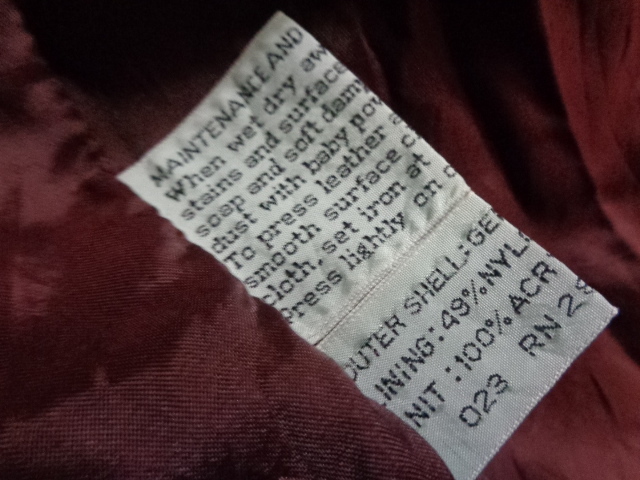 MAINTENANCE AND
When wet dry aw
stains and surface
soap and soft dam
dust with baby pow
To press leather a
smooth surface c
cloth, set iron at
press lightly on
OUTER SHELL: GE
LINING: 49% NYL
NIT: 100% ACR
023 RN 2